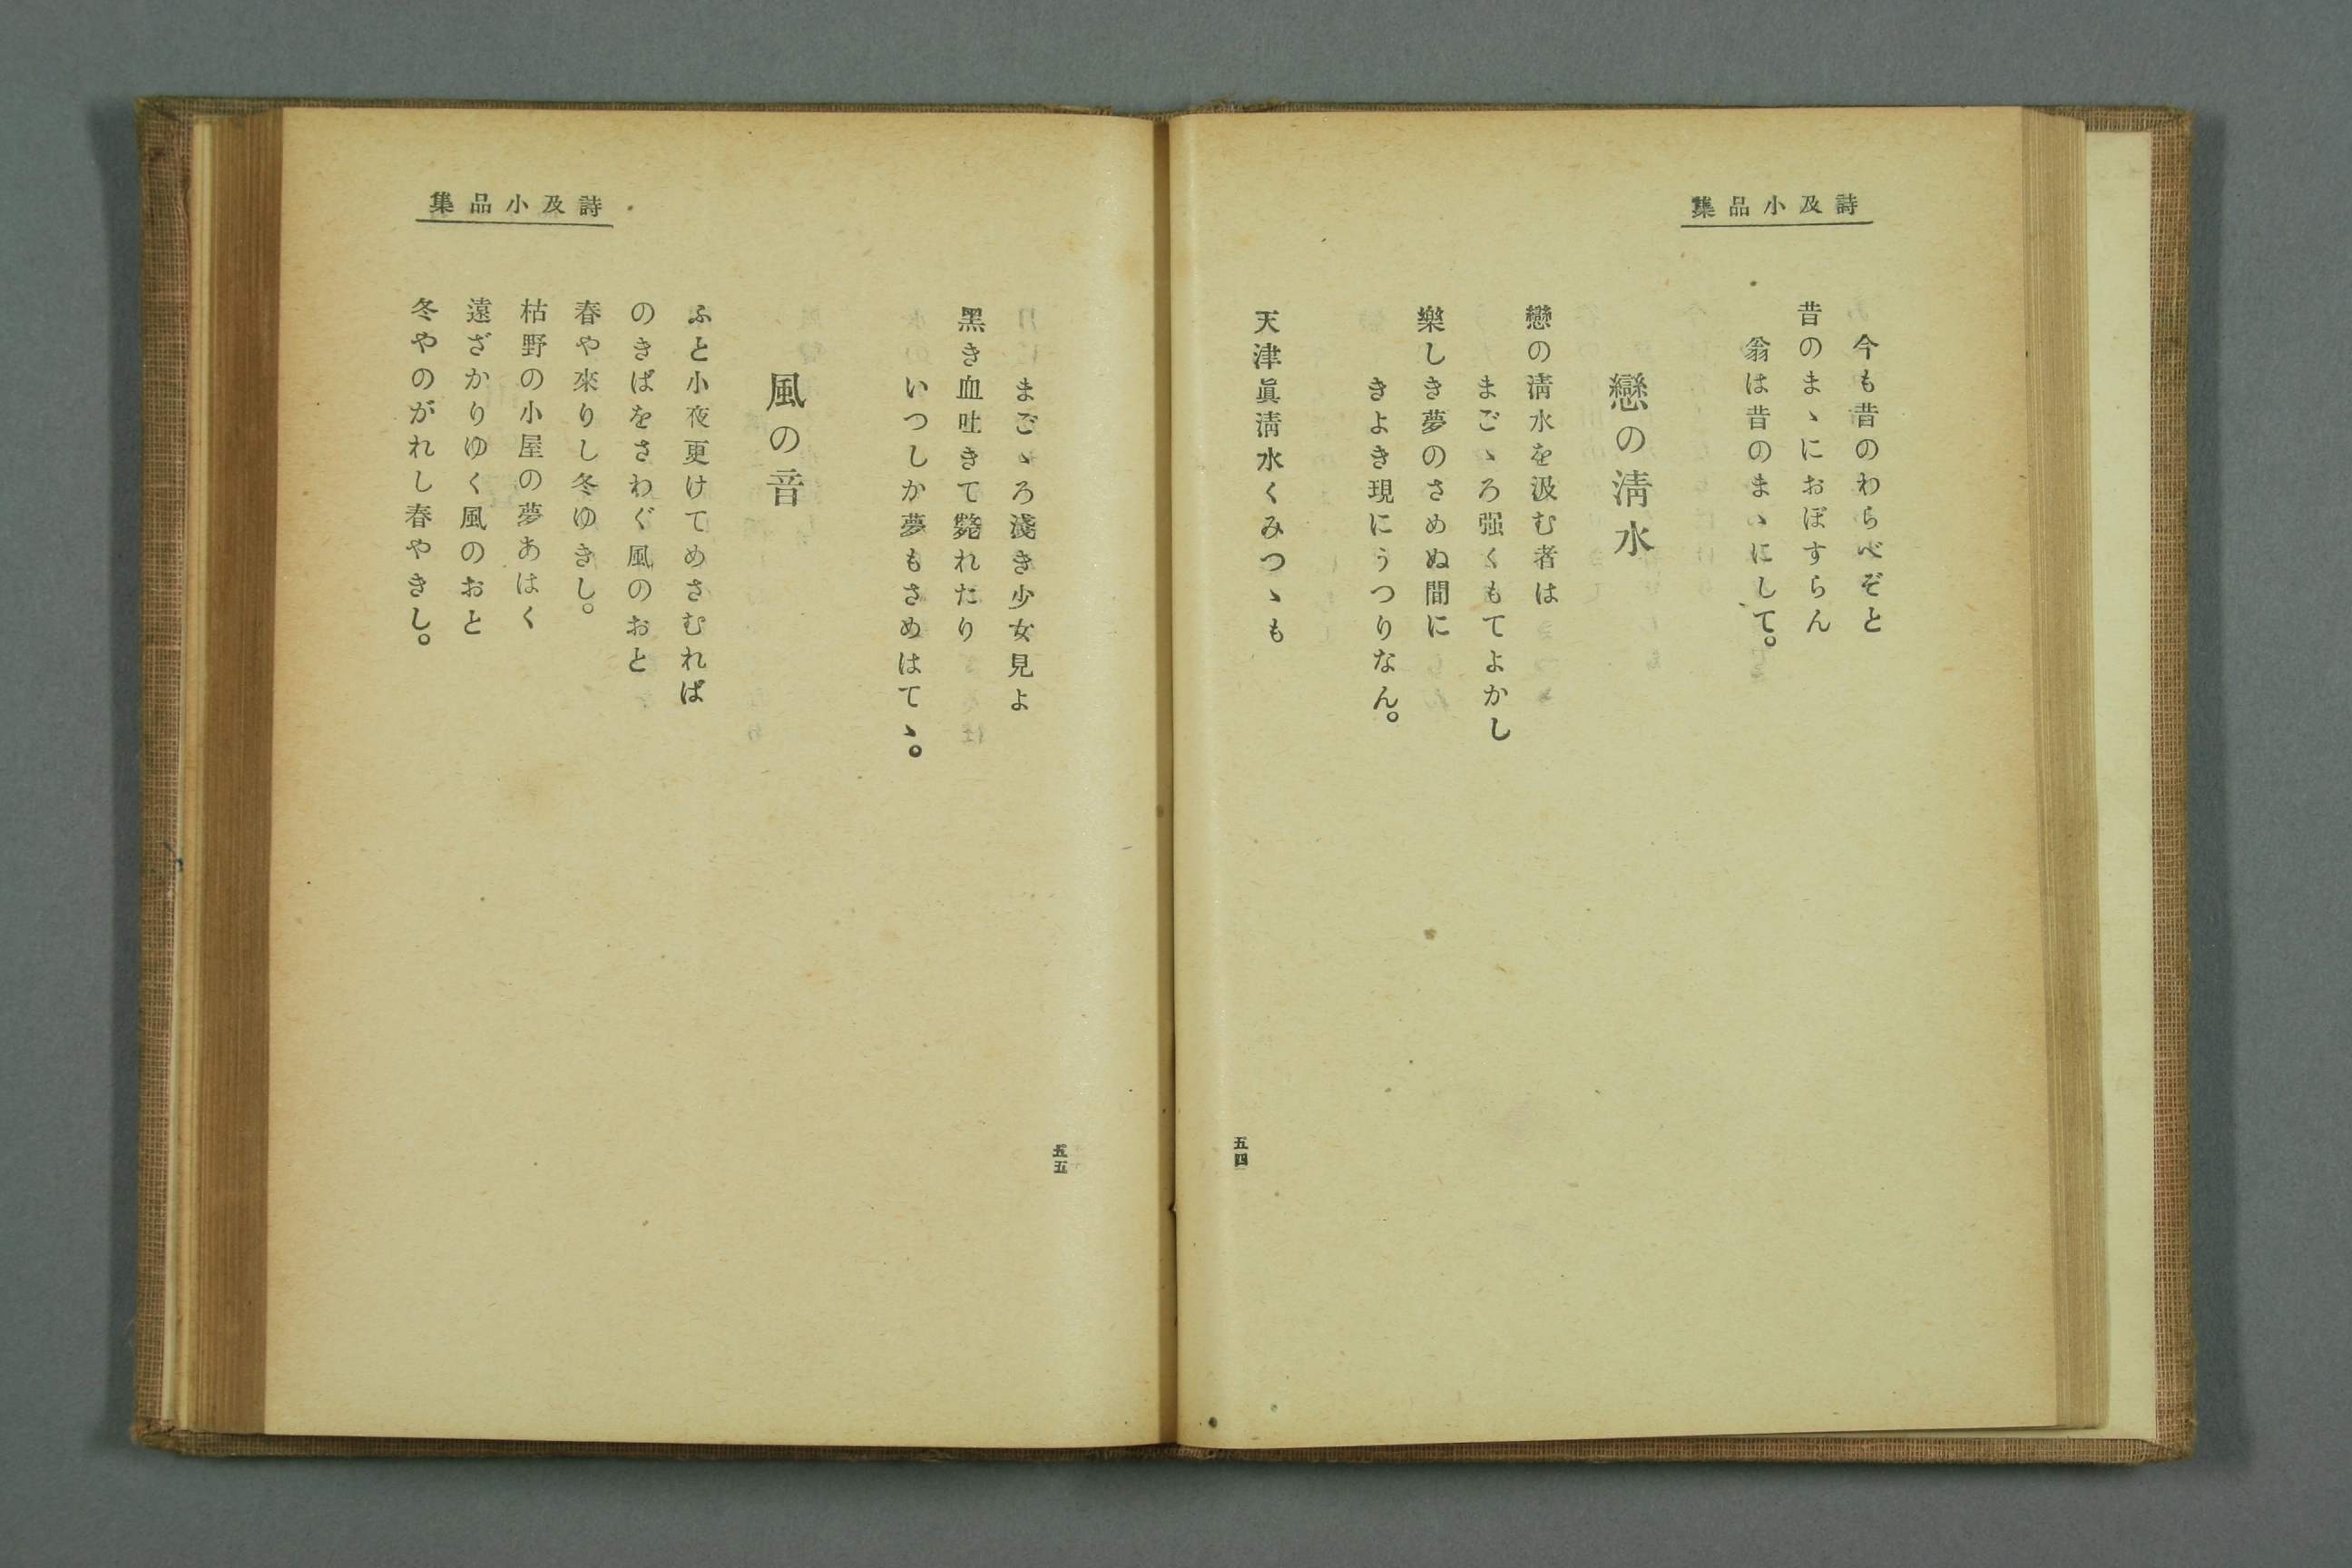 詩及小品集
今も昔のわらべぞと
昔のまゝにおぼすらん
翁は昔のまゝにして。
戀の淸水
戀の淸水を汲む者は
まごゝろ强くもてよかし
樂しき夢のさめぬ間に
きよき現にうつりなん。
天津眞淸水くみつゝも
五四
詩及小品集
まごゝろ淺き少女見よ
黑き血吐きて斃れたり
いつしか夢もさめはてゝ。
風の音
ふと小夜更けてめさむれば
のきばをさわぐ風のおと
春や來りし冬ゆきし。
枯野の小屋の夢あはく
遠ざかりゆく風のおと
冬やのがれし春やきし。
五五